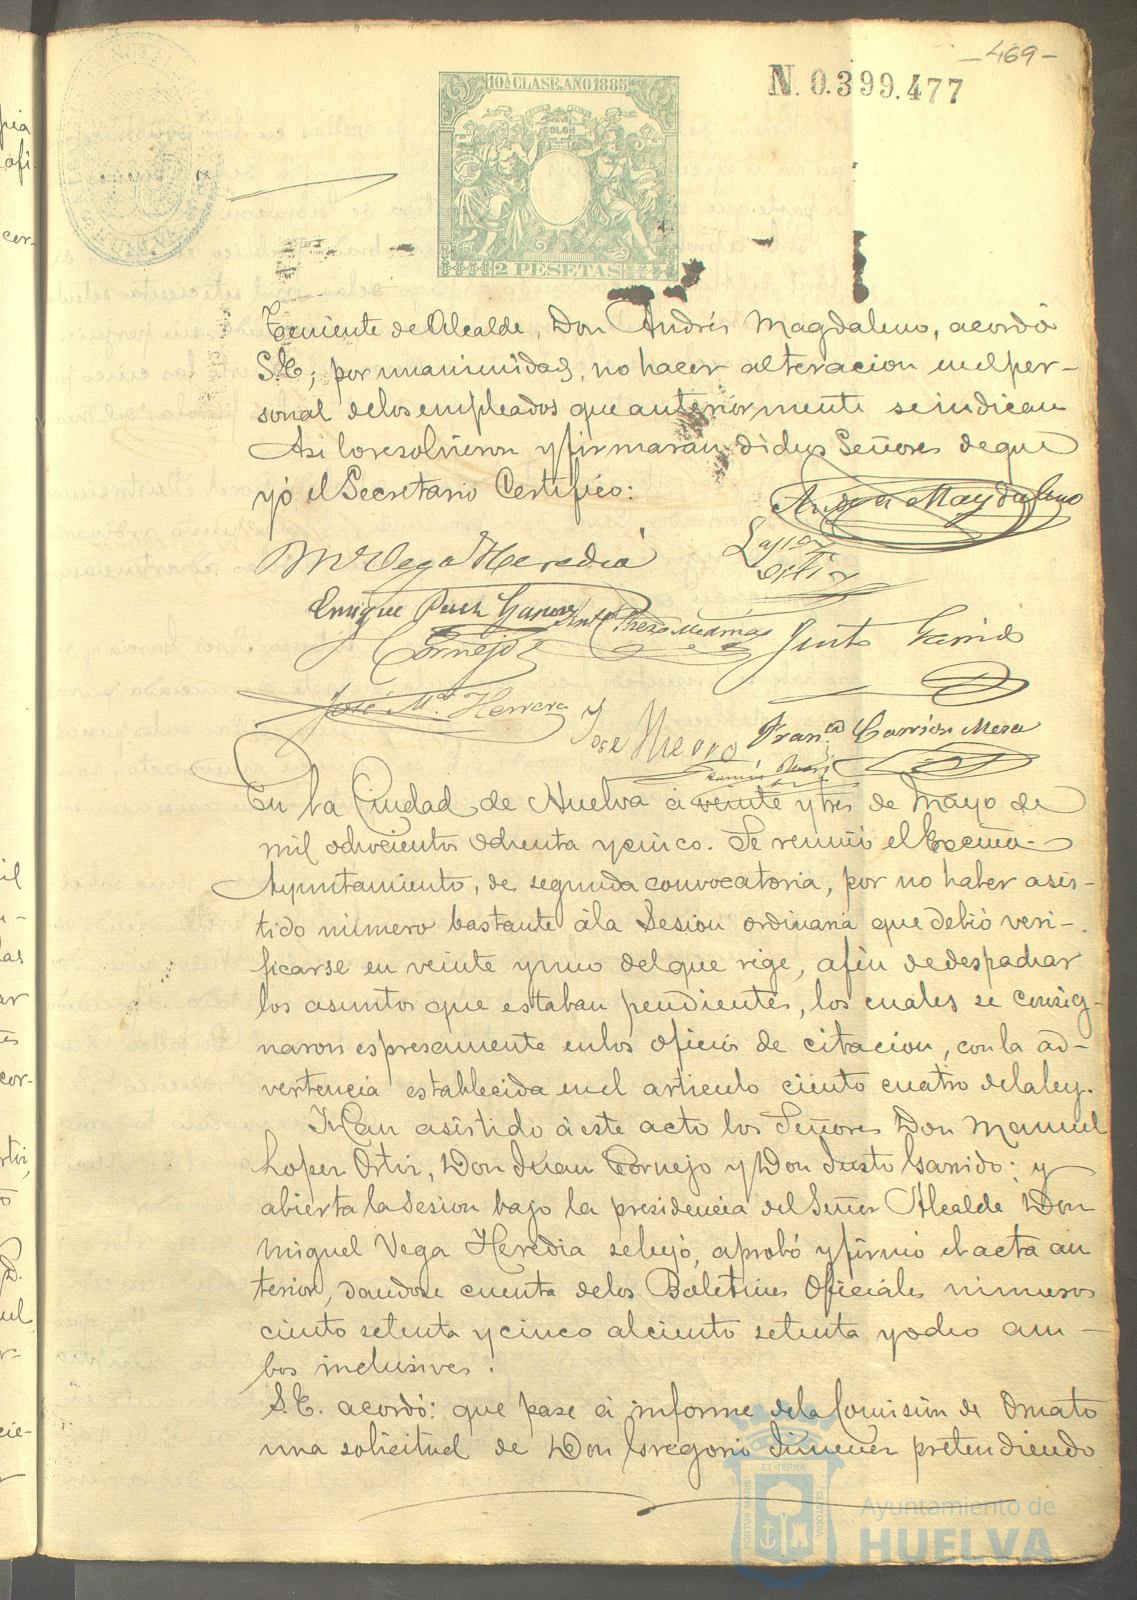 -469-
N. 0.399.477
10ª CLASE. AÑO 1885
COLON
2 PESETAS
Teniente de Alcalde, Don Andrés Magdaleno, acordó
S.E; por unanimidad, no hacer alteracion en el per-
sonal de los empleados que anteriormente se indican
Asi lo resolvieron y firmaran dichos Señores de que
yó el Secretario Certifico:
Andrés Magdaleno
Mˡ Vega Heredia
Lopez
Ortiz
Enrique
Cornejo
Justo Garrido
José Mª Herrera
José Nierro
Franᶜᵒ Carrión Mesa
En la Ciudad de Huelva á veinte y tres de Mayo de
mil ochocientos ochenta y cinco. Se reunió el Excmo.
Ayuntamiento, de segunda convocatoria, por no haber asis-
tido número bastante á la Sesion ordinaria que debió veri-
ficarse en veinte y uno del que rige, afin de despachar
los asuntos que estaban pendientes, los cuales se consig-
naron espresamente en los oficios de citacion, con la ad-
vertencia establecida en el articulo ciento cuatro de la ley.
Han asistido á este acto los Señores Don Manuel
Lopez Ortiz, Don Juan Cornejo y Don Justo Garrido: y
abierta la Sesion bajo la presidencia del Señor Alcalde Don
Miguel Vega Heredia se leyó, aprobó y firmó el acta an
terior, dandose cuenta de los Boletines Oficiales números
ciento setenta y cinco al ciento setenta y ocho am-
bos inclusives.
S.E. acordó: que pase á informe de la Comisión de Ornato
una solicitud de Don Gregorio Jimenez pretendiendo
PORTUS MARIS
ET TERRÆ
CUSTODIA
Ayuntamiento de
HUELVA